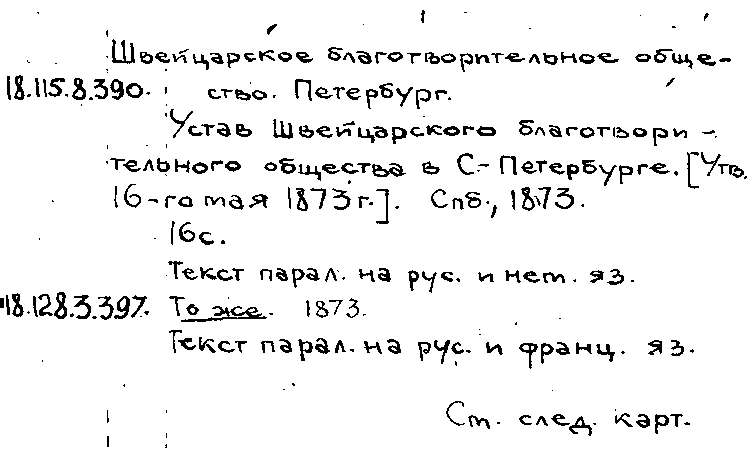 Швейцарское благотворительное обще-
18.115.8.390. ство. Петербург.
Устав Швейцарского благотвори-
тельного общества в С.-Петербурге. [Утв.
16-го мая 1873 г.]. Спб., 1873.
16 с.
Текст парал. на рус. и нем. яз.
18.128.3.397. То же. 1873.
Текст парал. на рус. и франц. яз.
См. след. карт.